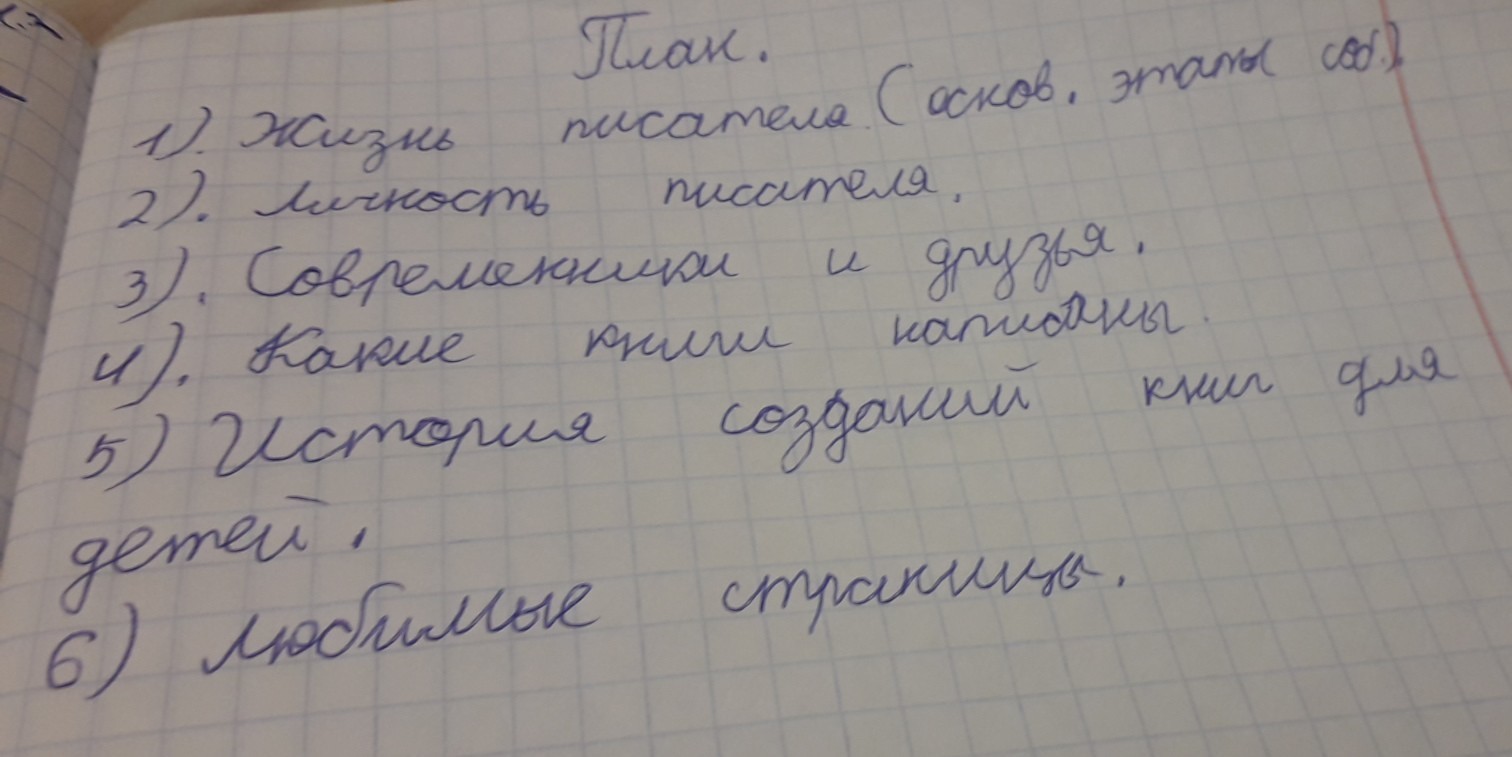 План.
1). Жизнь писателя (основ. этапы соб.)
2). Личность писателя.
3). Современники и друзья.
4). Какие книги написаны.
5) История созданий книг для
детей.
6) Любимые страницы.